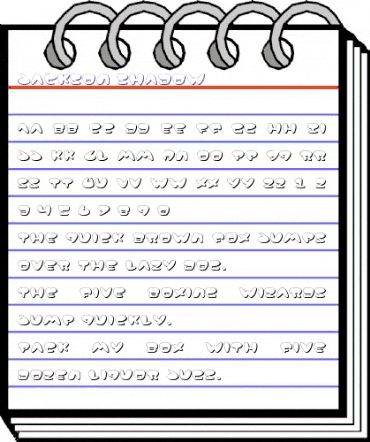 JACKSON SHADOW
AA BB CC DD EE FF GG HH II
JJ KK LL MM NN OO PP QQ RR
SS TT UU VV WW XX YY ZZ 1 2
3 4 5 6 7 8 9 0
THE QUICK BROWN FOX JUMPS
OVER THE LAZY DOG.
THE FIVE BOXING WIZARDS
JUMP QUICKLY.
PACK MY BOX WITH FIVE
DOZEN LIQUOR JUGS.